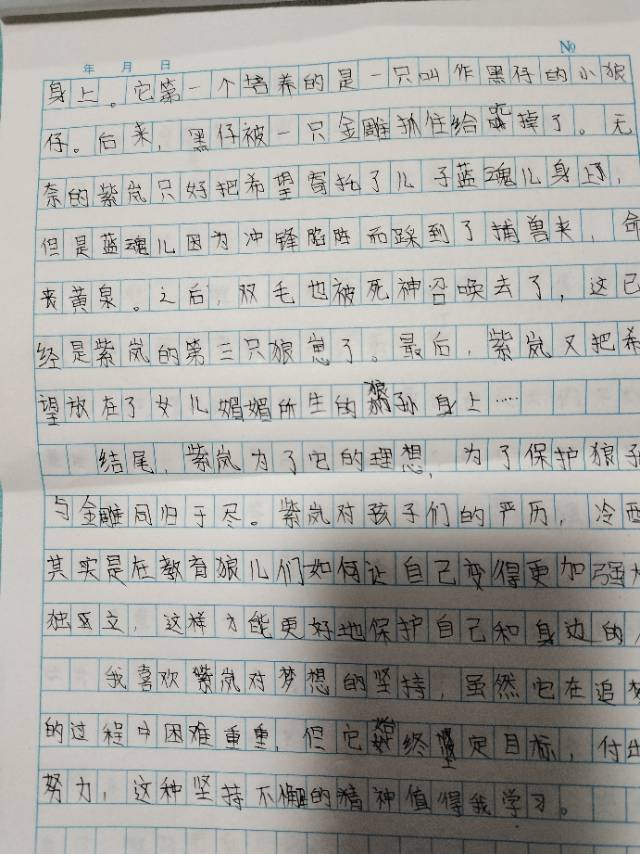 年 月 日 No
身上。它第一个培养的是一只叫作黑仔的小狼
仔。后来，黑仔被一只金雕抓住给吃掉了。无
奈的紫岚只好把希望寄托了儿子蓝魂儿身上，
但是蓝魂儿因为冲锋陷阵而踩到了捕兽夹，命
丧黄泉。之后，双毛也被死神召唤去了，这已
经是紫岚的第三只狼崽了。最后，紫岚又把希
望放在了女儿媚媚所生的狼孙身上……
结尾，紫岚为了它的理想，为了保护狼孙
与金雕同归于尽。紫岚对孩子们的严厉，冷酷
其实是在教育狼儿们如何让自己变得更加强大
独立，这样才能更好地保护自己和身边的人
我喜欢紫岚对梦想的坚持，虽然它在追梦
的过程中困难重重，但它始终坚定目标，付出
努力，这种坚持不懈的精神值得我学习。